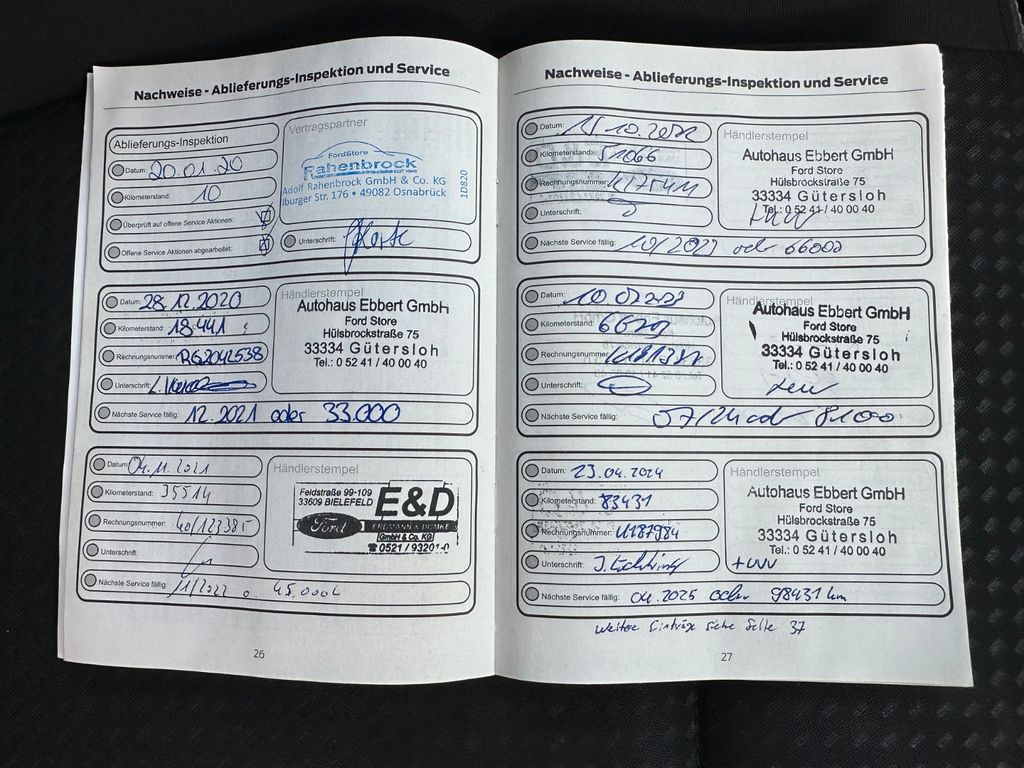 Nachweise - Ablieferungs-Inspektion und Service
Ablieferungs-Inspektion
Datum: 20.01.20
Kilometerstand: 10
Überprüft auf offene Service Aktionen:
Offene Service Aktionen abgearbeitet:
Vertragspartner
FordStore
Rahenbrock
Adolf Rahenbrock GmbH & Co. KG
Iburger Str. 176 • 49082 Osnabrück
1D820
Unterschrift:
Datum: 28.12.2020
Kilometerstand: 18.441
Rechnungsnummer: RG2042538
Unterschrift:
Händlerstempel
Autohaus Ebbert GmbH
Ford Store
Hülsbrockstraße 75
33334 Gütersloh
Tel.: 0 52 41 / 40 00 40
Nächste Service fällig: 12.2021 oder 33.000
Datum: 04.11.2021
Kilometerstand: 35514
Rechnungsnummer: 40/123385
Unterschrift:
Händlerstempel
Feldstraße 99-109
33609 BIELEFELD
E&D
Ford
ERDMANN & DOMKE
GmbH & Co. KG
☎ 0521 / 93201-0
Nächste Service fällig: 11/2022 o. 45.000
26
Nachweise - Ablieferungs-Inspektion und Service
Datum: 10.2022
Kilometerstand: 51066
Rechnungsnummer:
Unterschrift:
Händlerstempel
Autohaus Ebbert GmbH
Ford Store
Hülsbrockstraße 75
33334 Gütersloh
Tel.: 0 52 41 / 40 00 40
Nächste Service fällig: 10/2023 oder 66000
Datum:
Kilometerstand:
Rechnungsnummer:
Unterschrift:
Händlerstempel
Autohaus Ebbert GmbH
Ford Store
Hülsbrockstraße 75
33334 Gütersloh
Tel.: 0 52 41 / 40 00 40
Nächste Service fällig: 07/24 od 81000
Datum: 23.04.2024
Kilometerstand: 83431
Rechnungsnummer: U187984
Unterschrift:
Händlerstempel
Autohaus Ebbert GmbH
Ford Store
Hülsbrockstraße 75
33334 Gütersloh
Tel.: 0 52 41 / 40 00 40
Nächste Service fällig: 04.2025 oder 98431 km
weitere Einträge siehe Seite 37
27